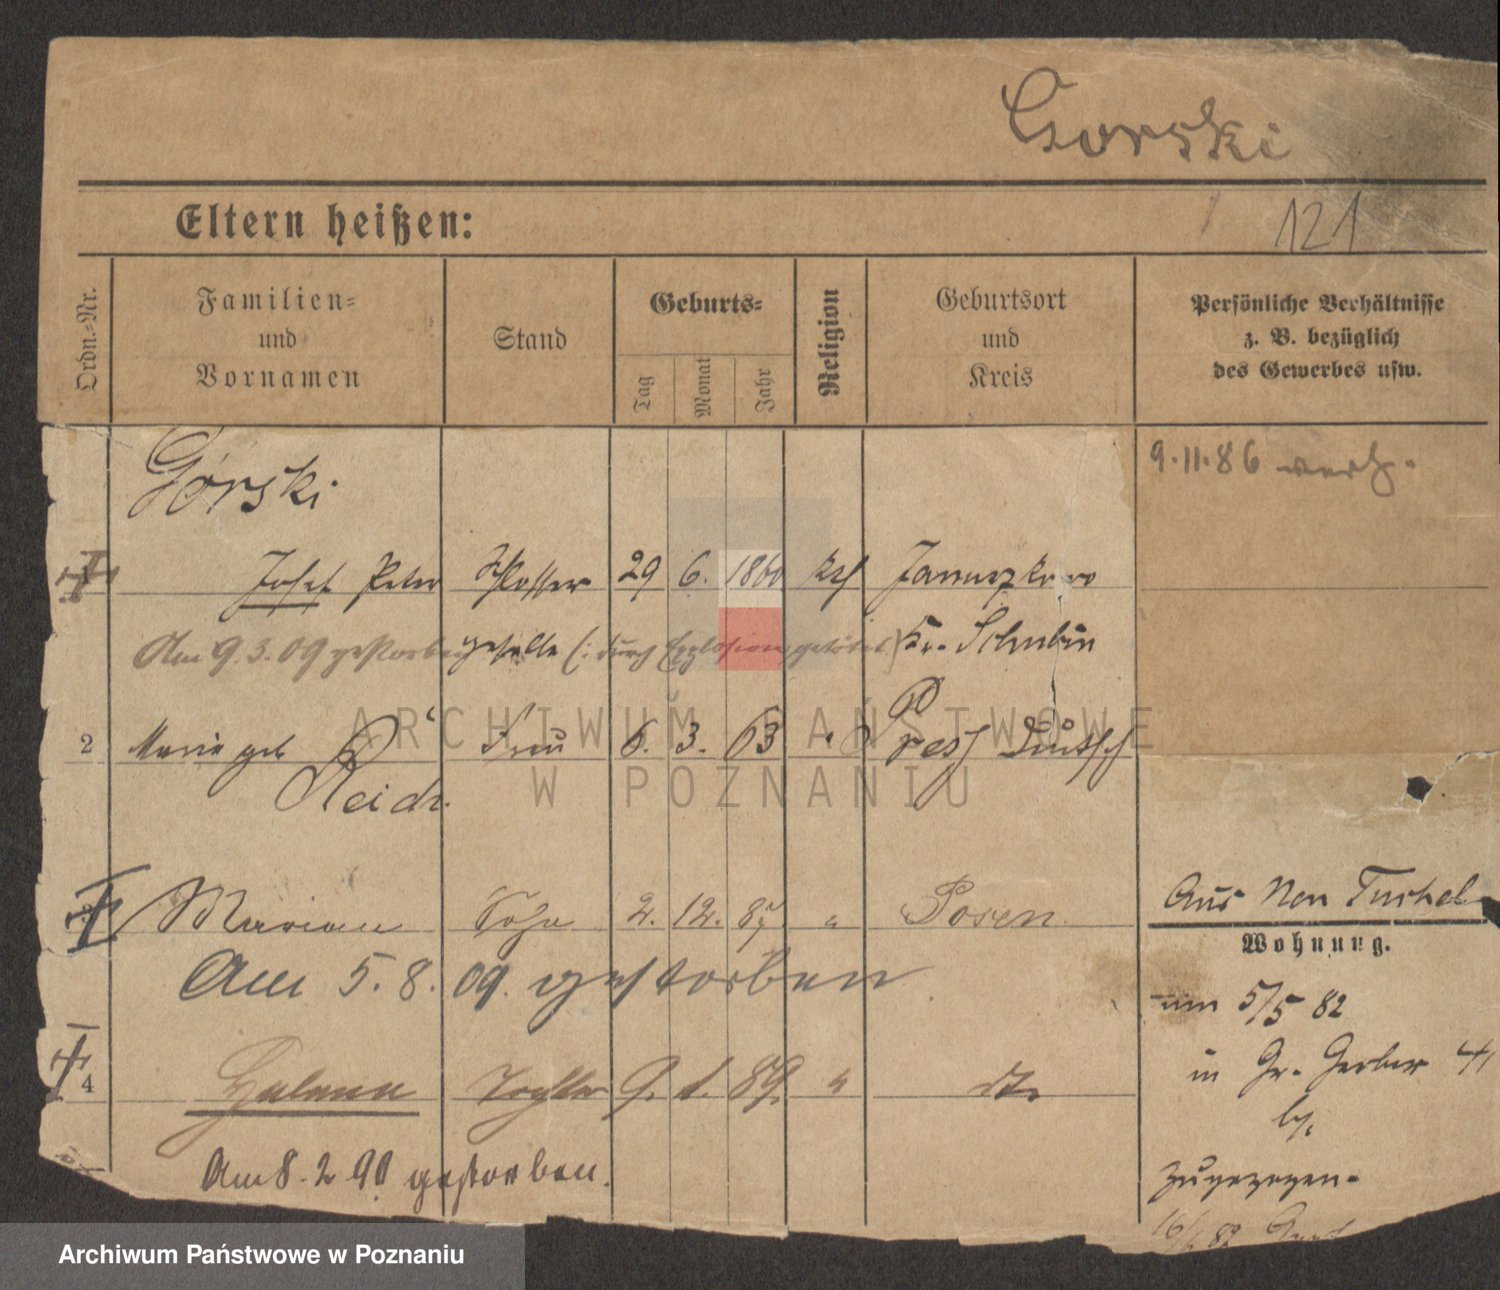 Gorski
Eltern heißen:
121
Ordn.-Nr.
Familien-
und
Vornamen
Stand
Geburts-
Tag
Monat
Jahr
Religion
Geburtsort
und
Kreis
Persönliche Verhältnisse
z. B. bezüglich
des Gewerbes usw.
Górski
9.11.86 verh.
Josef Peter Schlosser 29 6. 1860 kath Januszkowo
Am 9.3.09 gestorben geselle (: durch Explosion getötet) Kr. Schubin
2 Marie geb Frau 6. 3. 63 " Deutsch
ARCHIWUM PAŃSTWOWE
W POZNANIU
Marian Sohn 2. 12. 87 " Posen
Aus Tuchel
Wohnung.
Am 5.8.09. gestorben
5/5 82
4 Helena Tochter 9. 1. 89. " dto
in Gr. Gerber 41
Am 8.2.90 gestorben.
zugezogen.
Archiwum Państwowe w Poznaniu